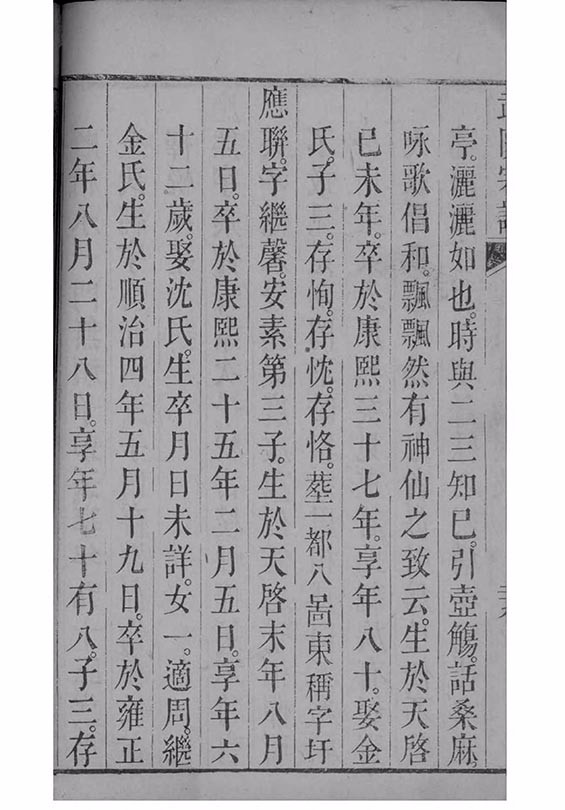 亭。灑灑如也。時與二三知已。引壺觴。話桑麻。
咏歌倡和。飄飄然有神仙之致云。生於天啓
已未年。卒於康熙三十七年。享年八十。娶金
氏。子三。存恂。存忱。存恪。塟一都八啚東稱字圩
應聨。字繼馨。安素第三子。生於天啓末年八月
五日。卒於康熙二十五年二月五日。享年六
十二歲。娶沈氏。生卒月日未詳。女一。適周。繼
金氏。生於順治四年五月十九日。卒於雍正
二年八月二十八日。享年七十有八。子三。存